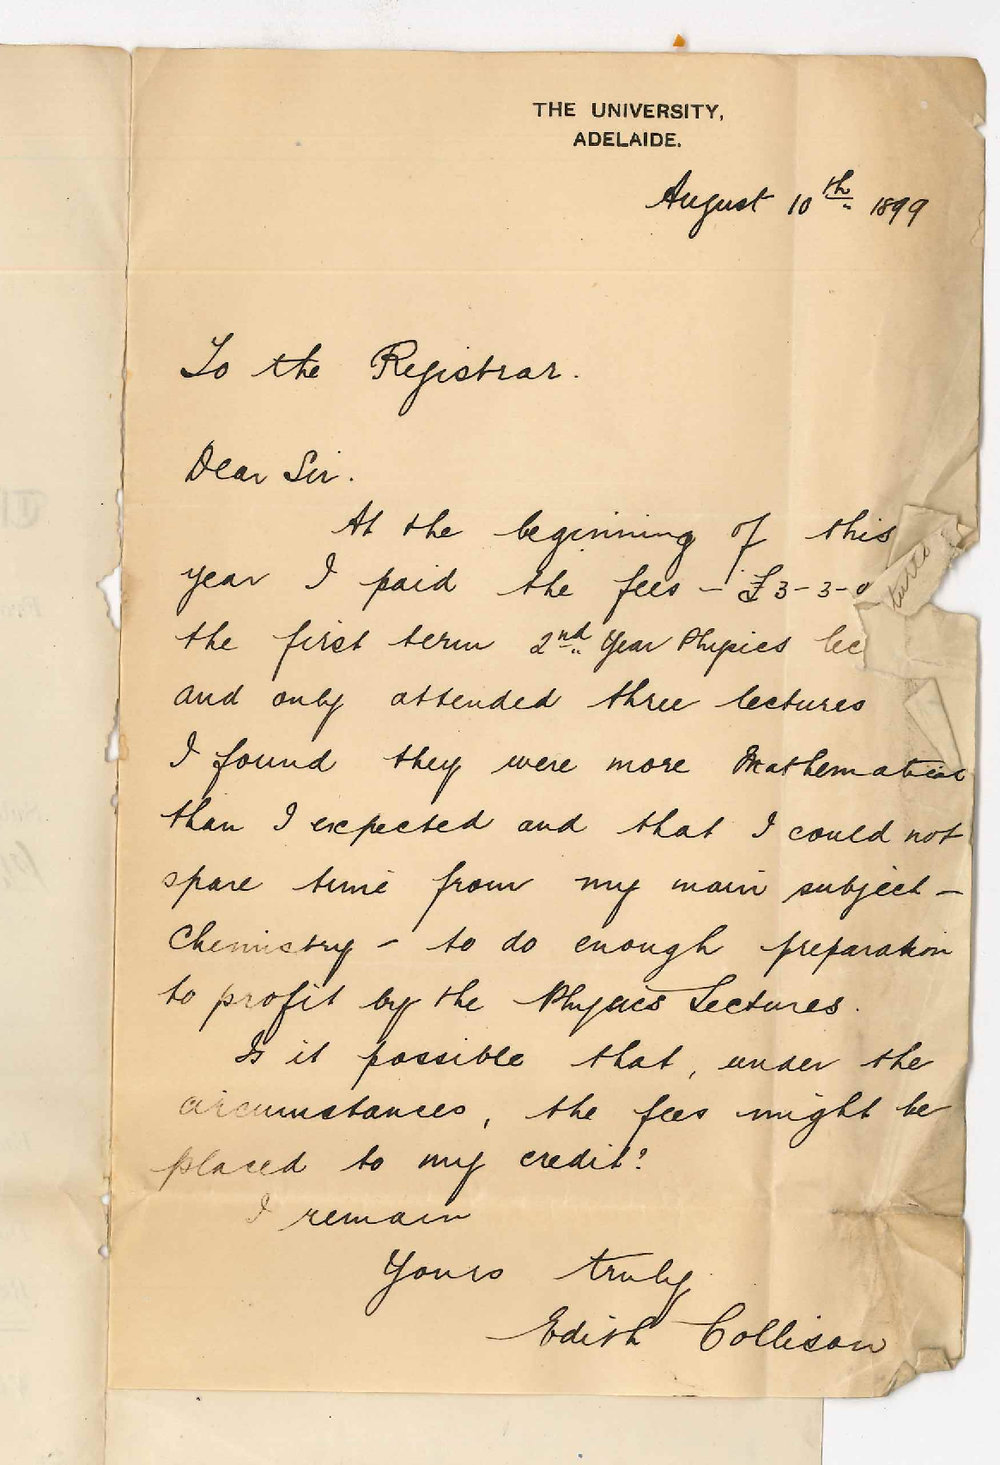 THE UNIVERSITY,
ADELAIDE.
August 10th 1899
To the Registrar.
Dear Sir.
At the beginning of this
year I paid the fees – £3-3-0
the first term 2nd Year Physics lec
tures
and only attended three lectures
I found they were more Mathematical
than I expected and that I could not
spare time from my main subject –
Chemistry – to do enough preparation
to profit by the Physics Lectures.
Is it possible that, under the
circumstances, the fees might be
placed to my credit?
I remain
Yours truly
Edith Collison